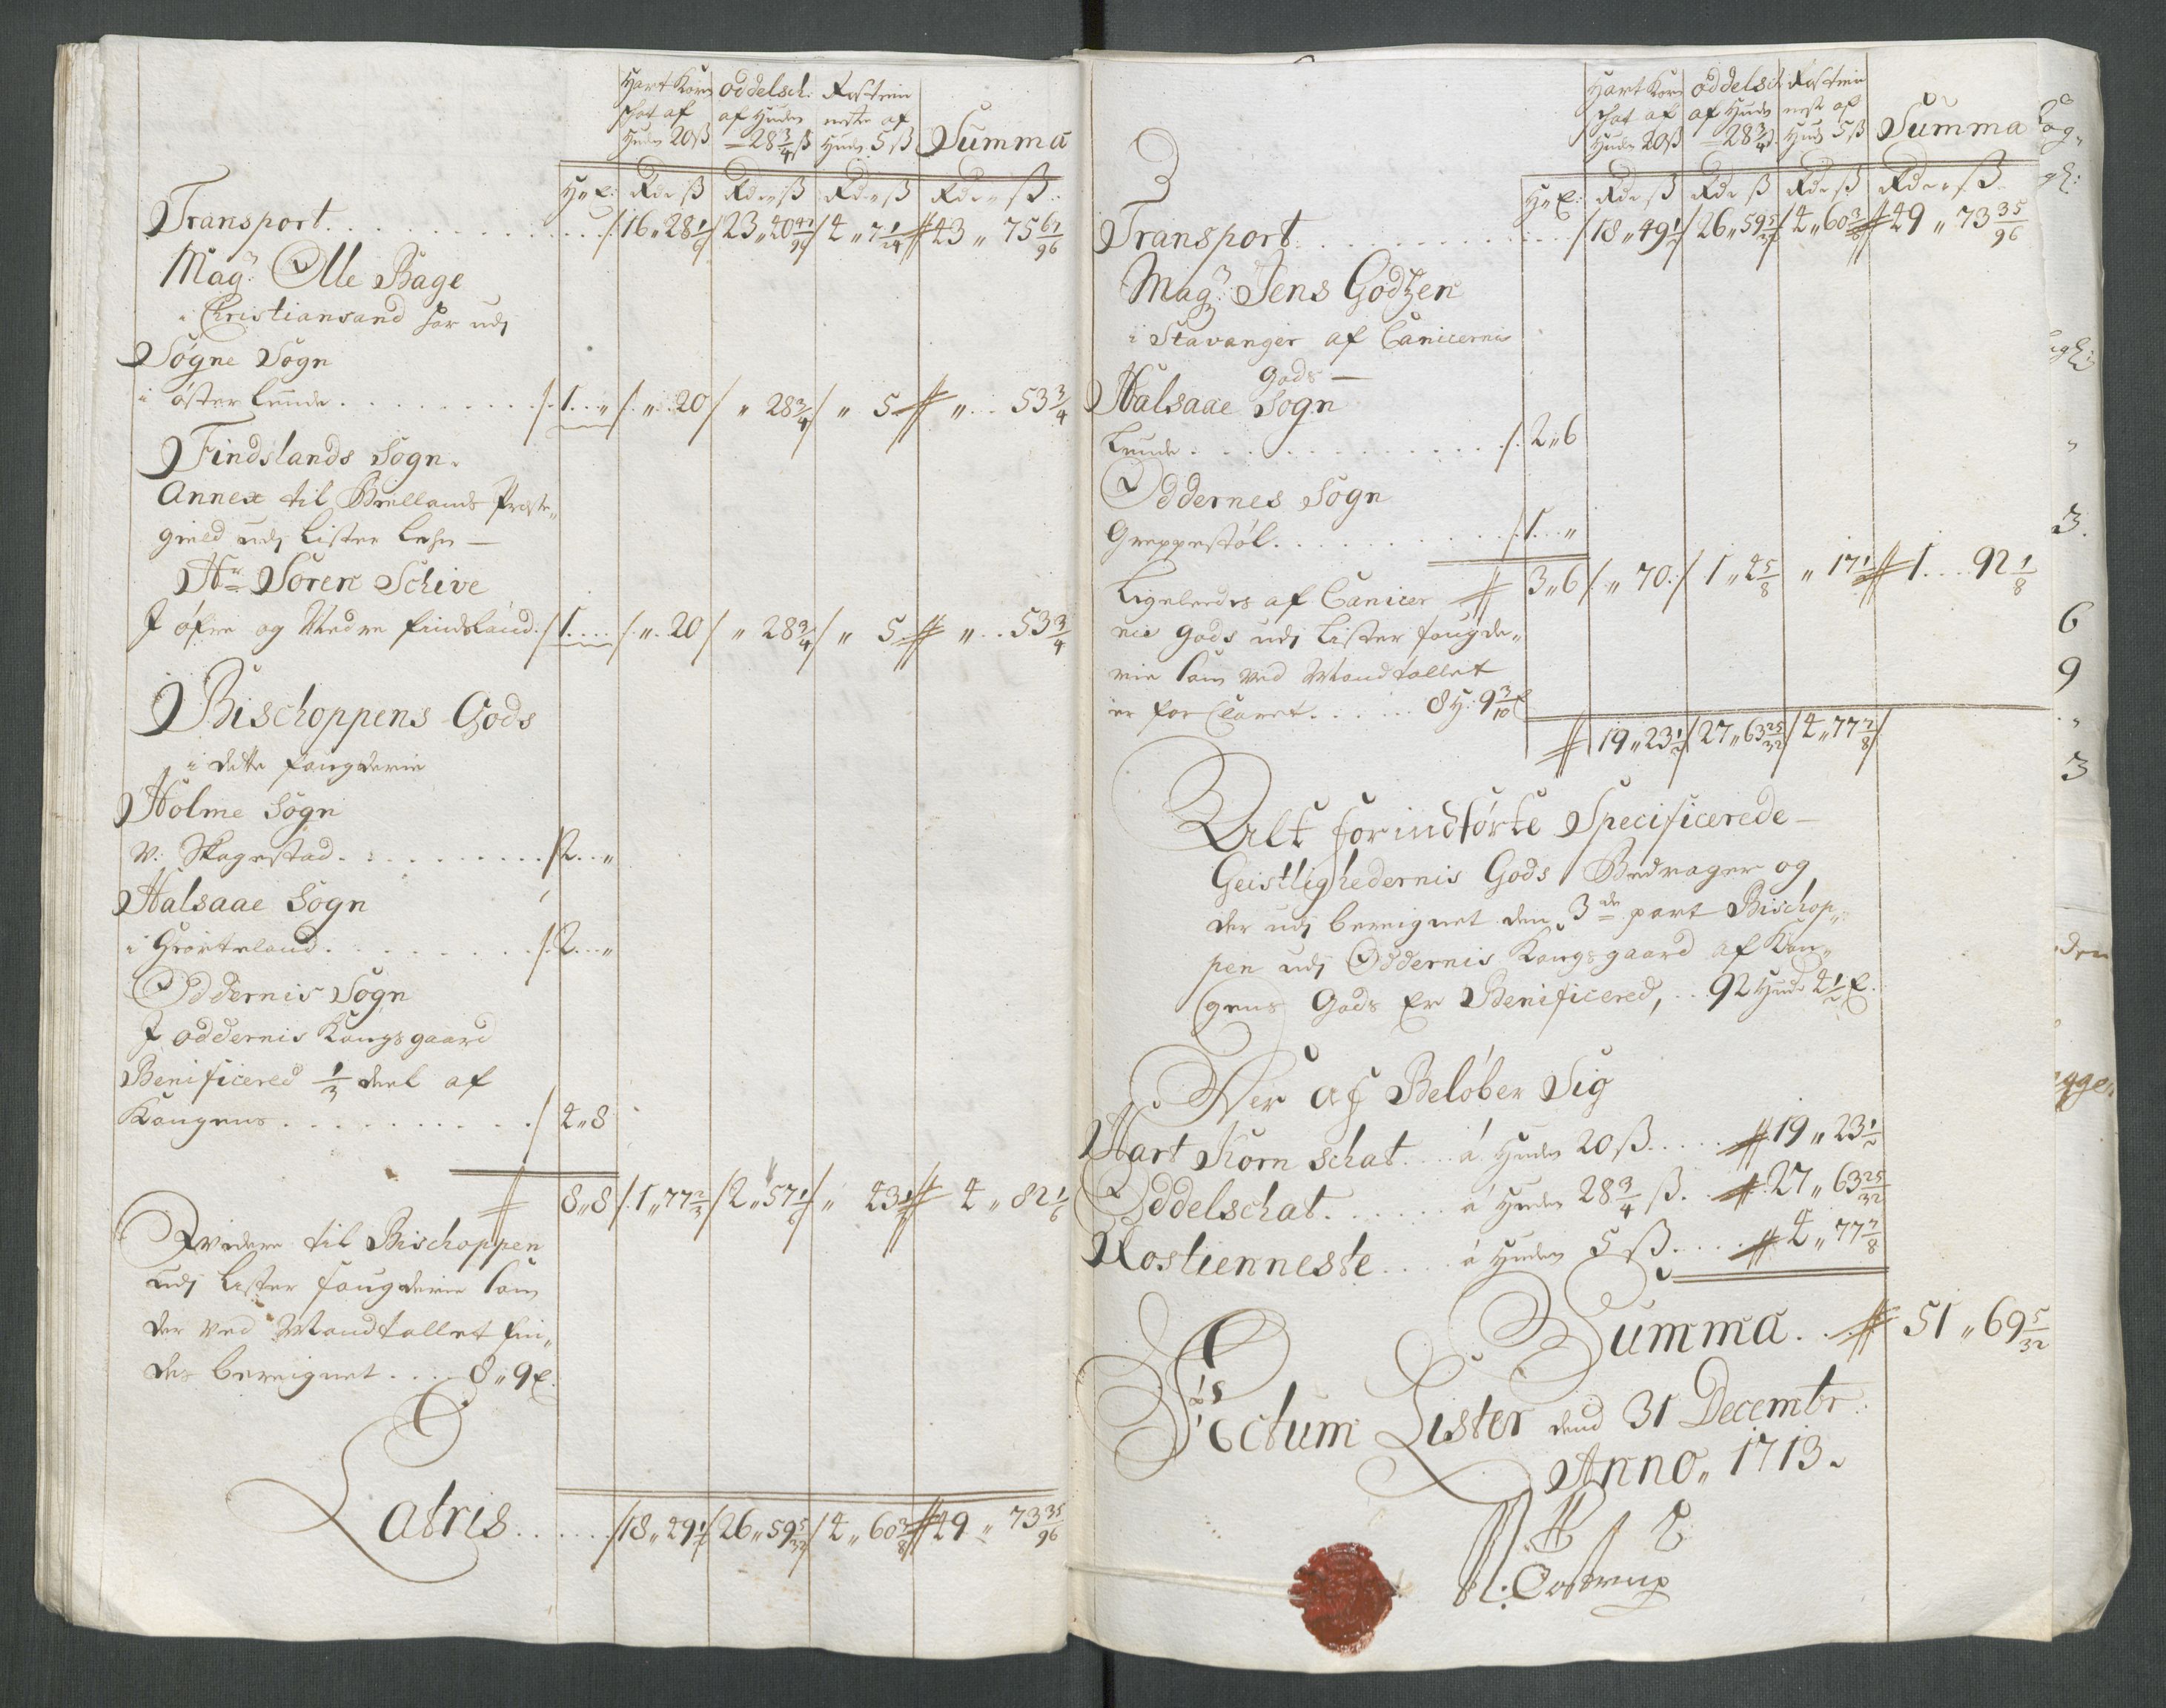 Hart Korn schat af Huden 20 ß | oddelsch: af Huden 28 3/4 ß | Rostienneste af Hud: 5 ß | Summa
H " E: | Rdr ß | Rdr " ß | Rdr " ß | Rdr " ß
Transport . . . /16 " 28 1/6 /23 " 40 47/96 /4 " 7 1/24 43 " 75 67/96
Magr: Olle Bage
i Christiansand har udj
Søgne Sogn
i øster Lunde . . . 1 . . " / " 20 / " 28 3/4 / " 5 " . . 53 3/4
Findslands Sogn.
Annex til Biellands Præste„
gield udj Lister Lehn —
Hr Søren Schive
J øfre og Nedre findsland . / 1 . . . / " 20 / " 28 3/4 / " 5 " . . 53 3/4
Bischoppens Gods
i dette fougderie
Holme Sogn
N: Skagestad . . . 2 . . "
Halsaae Sogn
i Hiorteland . . . 2 . . "
Oddernis Sogn
J oddernis Kongsgaard
Benificered 1/3 deel af
Kongens . . . / 4 " 8
8 " 8 / 1 " 77 2/3 / 2 " 57 1/6 / " 43 1/3 4 " 82 1/6
Widere til Bischoppen
udj Lister fougderie som
der ved Mandtallet fin„
des beregnet . . . 8 " 9 E.
Latris . . . /18 " 49 1/2 /26 " 59 5/32 /4 " 60 3/8 49 " 73 35/96
Hart Korn schat af Huden 20 ß | oddelsch af Huden 28 3/4 ß | Rostienneste af Hud: 5 ß | Summa
H " E: | Rdr ß | Rdr ß | Rdr ß | Rdr " ß
Transport . . . / 18 " 49 1/2 / 26 " 59 5/32 / 4 " 60 3/8 49 " 73 35/96
Magr: Jens Godtzen
i Stavanger af Canicernis
Gods —
Halsaae Sogn
Lunde . . . 2 " 6
Oddernes Sogn
Greppestøl . . . 1 . . "
3 " 6 / " 70 / 1 " 4 5/8 " 17 1/2 1 . . . 92 1/8
Ligeledes af Canicer
nis gods udj Lister fougde„
rie som ved Mandtallet
er forclaret . . . 8 H: 9 3/10 E
19 " 23 1/2 / 27 " 63 25/32 / 4 " 77 7/8 /
Alt forindførte Specificerede
Geistlighedernis Gods Bedrager og
der udj beregnet den 3de part Bischop„
pen udj Oddernis Kongsgaard af Kon„
gens Gods Er Benificered, . . 92 Hude 4 1/2 E.
Der af Beløber Sig
Hart Korn schat . . . á Huden 20 ß . . . 19 " 23 1/2
Oddelschat . . . á Huden 28 3/4 ß . . 27 " 63 25/32
Rostienneste . . . á Huden 5 ß . . . 4 " 77 7/8
Summa . . 51 " 69 5/32
Actum Lister dend 31 Decembr:
Anno " 1713.